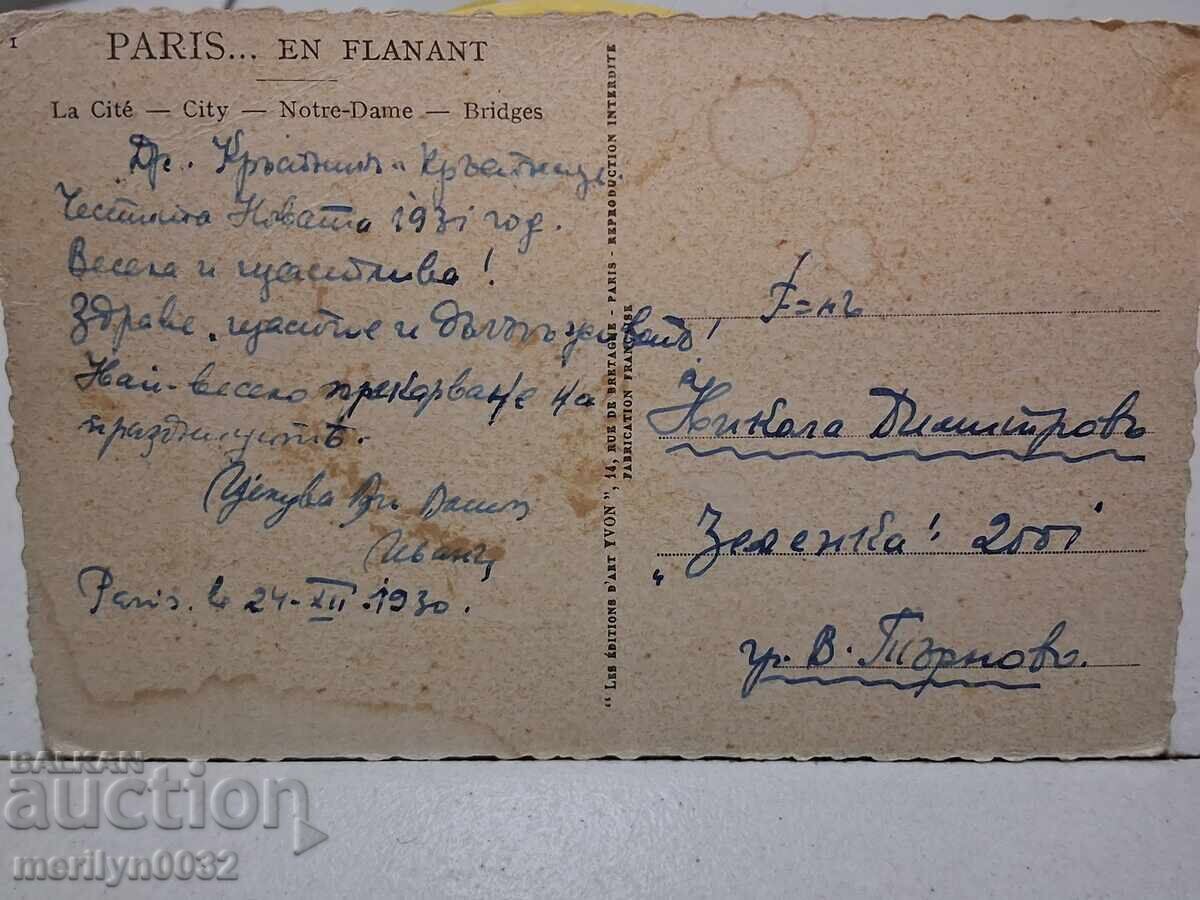 1
PARIS... EN FLANANT
La Cité — City — Notre-Dame — Bridges
Др. Кръстникъ и Кръстница.
Честита Новата 1931 год.
Весела и щастлива!
Здраве, щастие и дълъгъ животъ!
Най-весело прекарване на
празницитѣ.
Целува Ви Вашия
Иванъ
Paris. le 24-XII-1930.
"LES ÉDITIONS D'ART YVON", 14, RUE DE BRETAGNE - PARIS - REPRODUCTION INTERDITE
FABRICATION FRANÇAISE
Г-нъ
Никола Димитровъ
"Зеленка" 2001
гр. В. Търново.
BALKAN
auction
merilyn0032